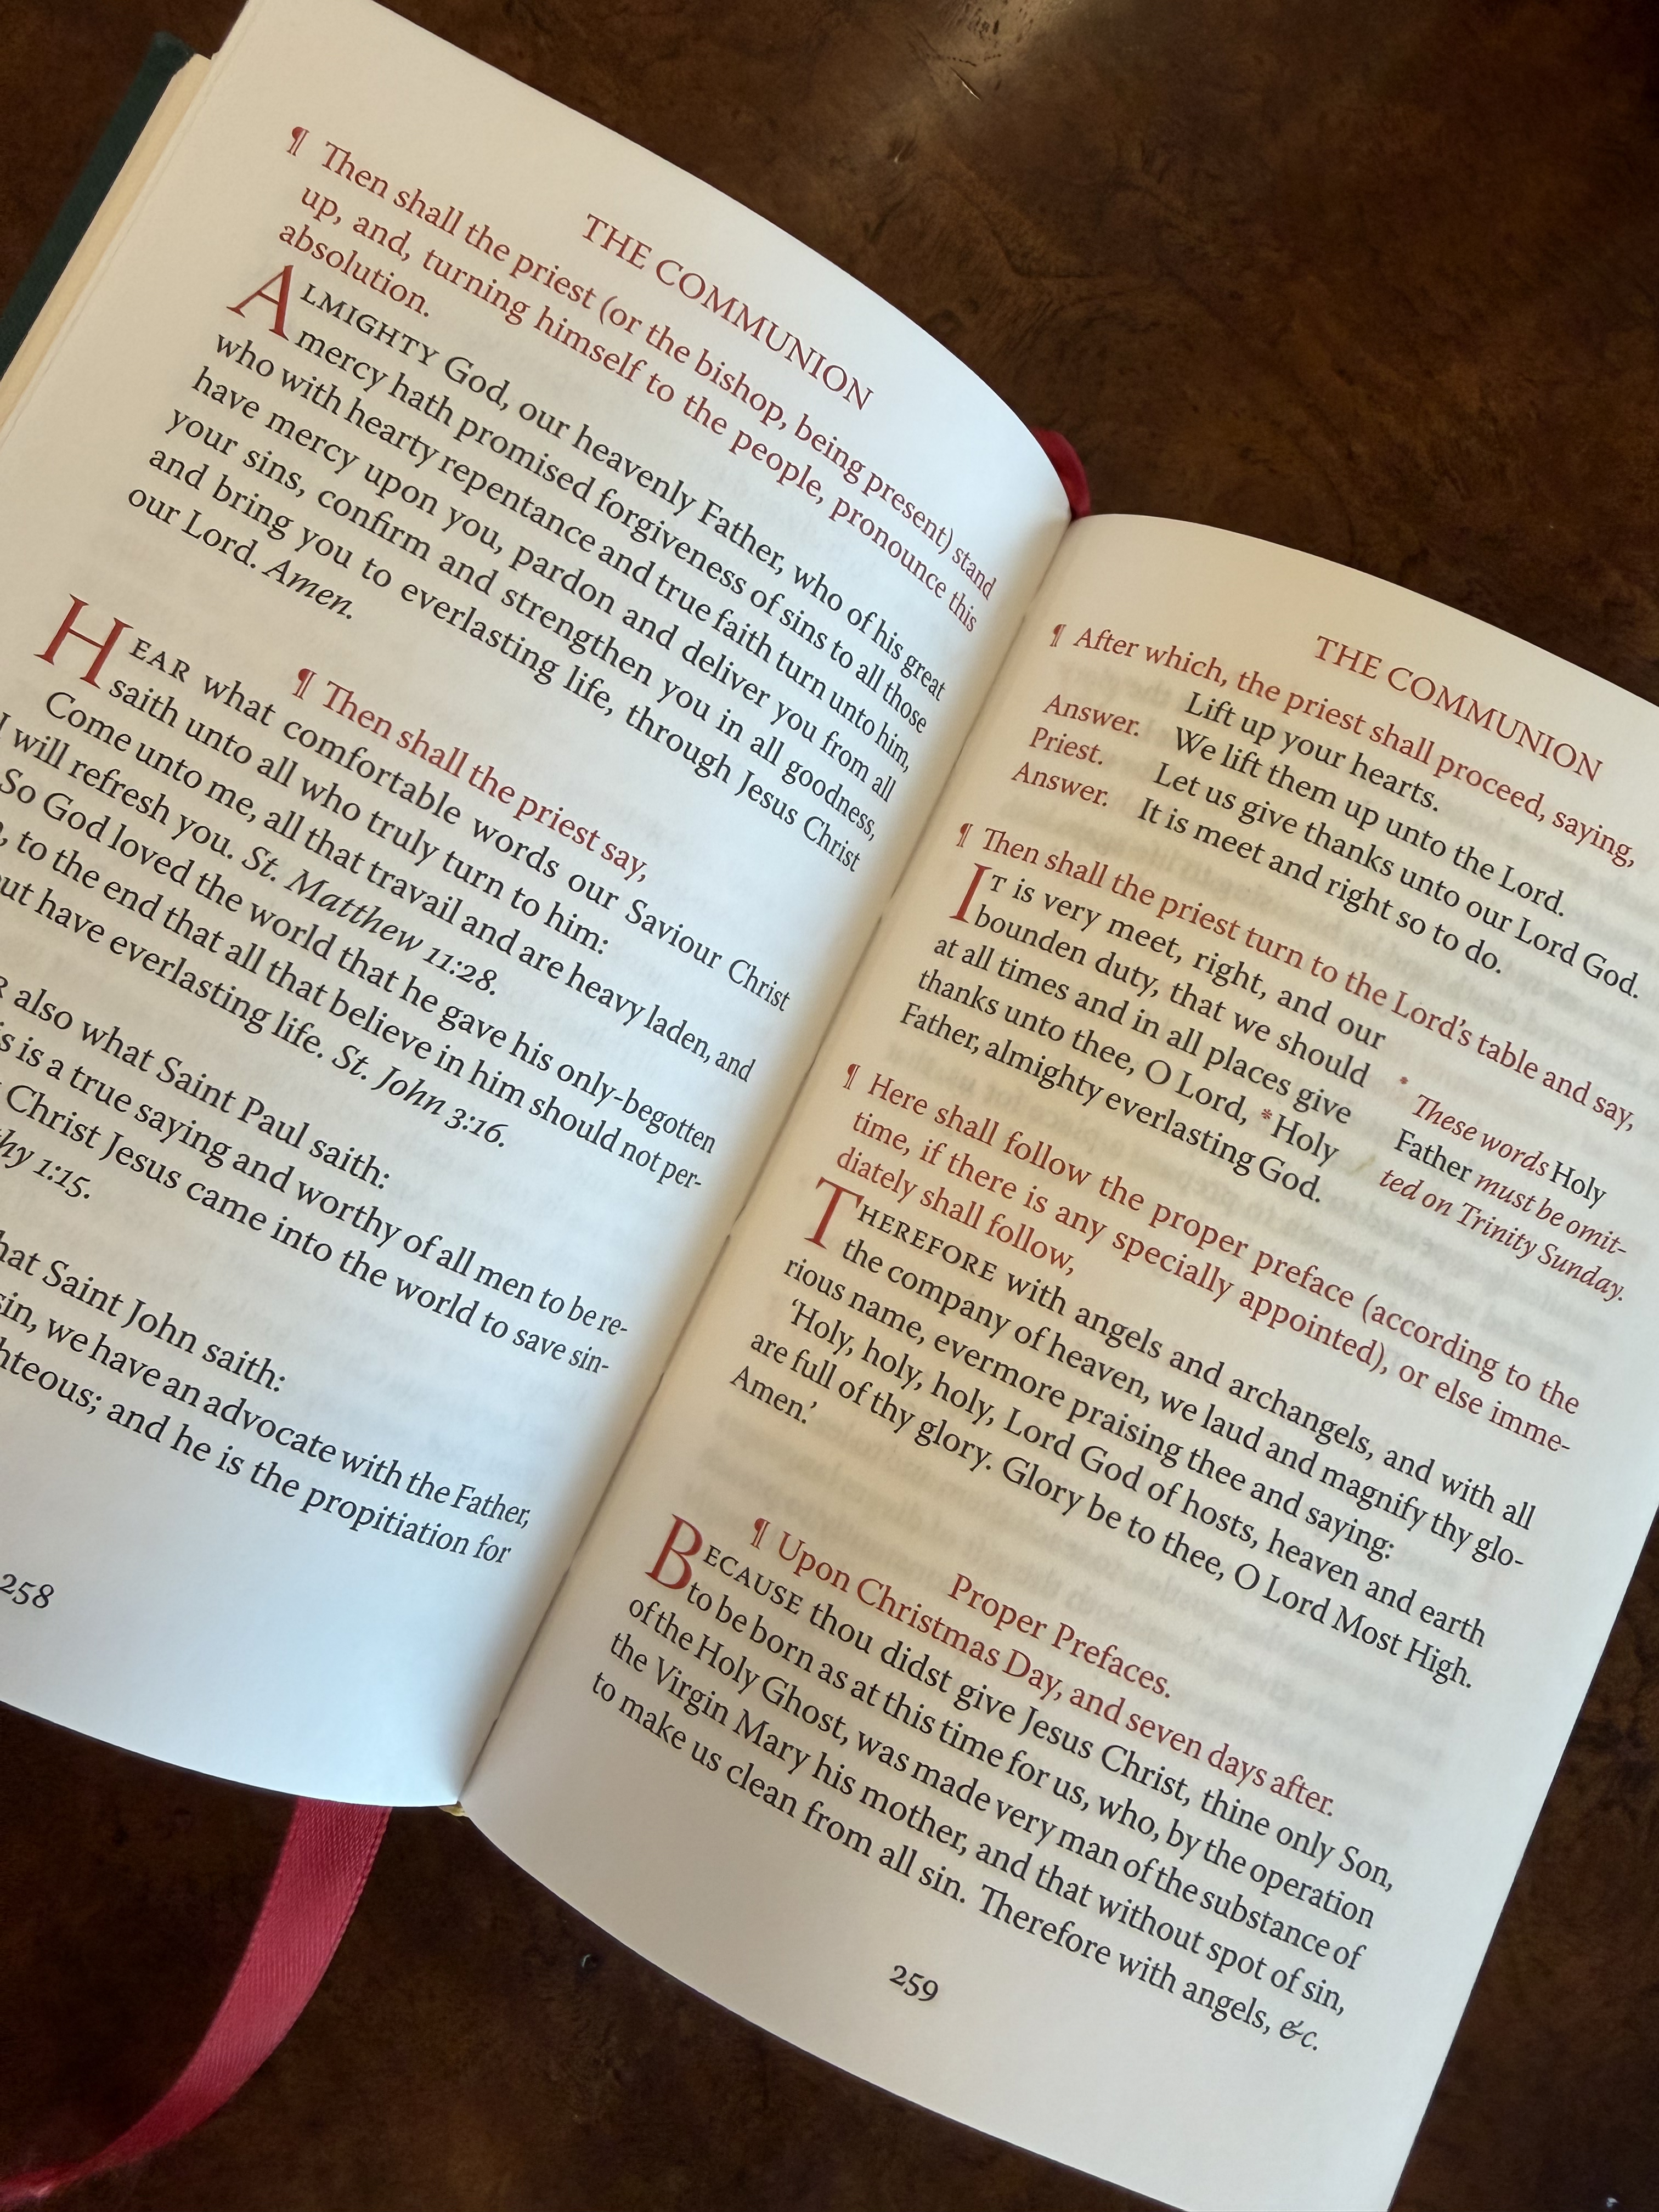 THE COMMUNION
¶ Then shall the priest (or the bishop, being present) stand
up, and, turning himself to the people, pronounce this
absolution.
ALMIGHTY God, our heavenly Father, who of his great
mercy hath promised forgiveness of sins to all those
who with hearty repentance and true faith turn unto him,
have mercy upon you, pardon and deliver you from all
your sins, confirm and strengthen you in all goodness,
and bring you to everlasting life, through Jesus Christ
our Lord. Amen.
¶ Then shall the priest say,
HEAR what comfortable words our Saviour Christ
saith unto all who truly turn to him:
Come unto me, all that travail and are heavy laden, and
I will refresh you. St. Matthew 11:28.
So God loved the world that he gave his only-begotten
to the end that all that believe in him should not per-
have everlasting life. St. John 3:16.
also what Saint Paul saith:
is a true saying and worthy of all men to be re-
Christ Jesus came into the world to save sin-
1:15.
Saint John saith:
sin, we have an advocate with the Father,
and he is the propitiation for
258
THE COMMUNION
¶ After which, the priest shall proceed, saying,
Lift up your hearts.
Answer. We lift them up unto the Lord.
Priest. Let us give thanks unto our Lord God.
Answer. It is meet and right so to do.
¶ Then shall the priest turn to the Lord's table and say,
IT is very meet, right, and our
bounden duty, that we should
at all times and in all places give
thanks unto thee, O Lord, *Holy
Father, almighty everlasting God.
* These words Holy
Father must be omit-
ted on Trinity Sunday.
¶ Here shall follow the proper preface (according to the
time, if there is any specially appointed), or else imme-
diately shall follow,
THEREFORE with angels and archangels, and with all
the company of heaven, we laud and magnify thy glo-
rious name, evermore praising thee and saying:
'Holy, holy, holy, Lord God of hosts, heaven and earth
are full of thy glory. Glory be to thee, O Lord Most High.
Amen.'
Proper Prefaces.
¶ Upon Christmas Day, and seven days after.
BECAUSE thou didst give Jesus Christ, thine only Son,
to be born as at this time for us, who, by the operation
of the Holy Ghost, was made very man of the substance of
the Virgin Mary his mother, and that without spot of sin,
to make us clean from all sin. Therefore with angels, &c.
259